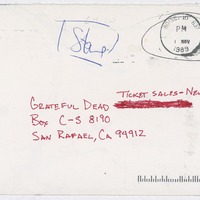 [Stamp]
PM
1 NOV
1989
TICKET SALES-NEW
GRATEFUL DEAD
BOX C-S 8190
SAN RAFAEL, CA 99912